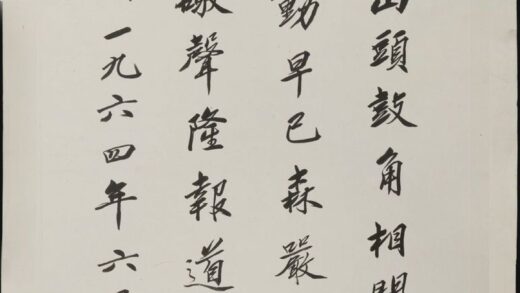 山頭鼓角相聞
動早已森嚴
礮聲隆報道
一九六四年六月